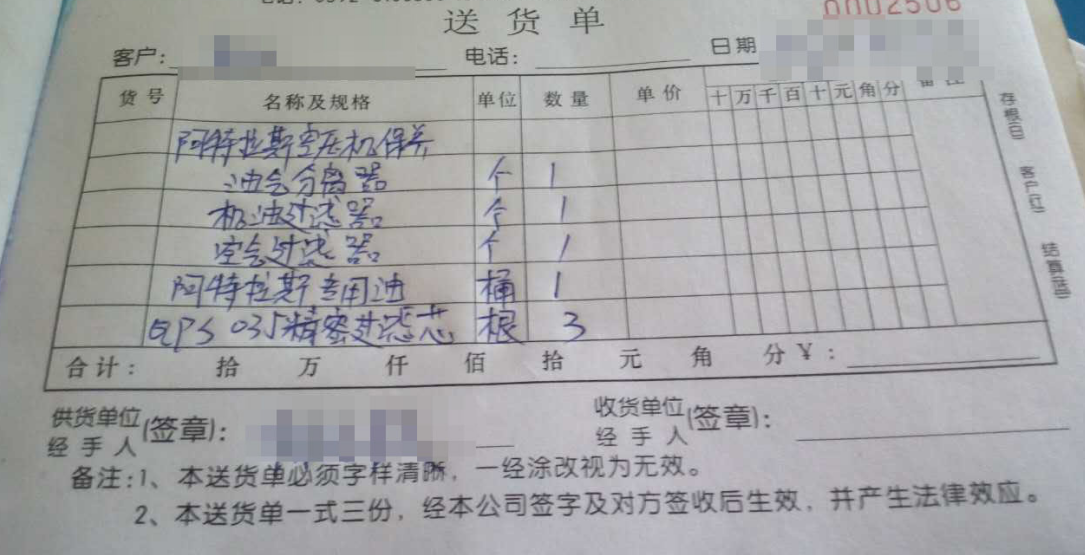 送货单
0002506
客户:
电话:
日期
货号 名称及规格 单位 数量 单价 十万千百十元角分 备注
阿特拉斯空压机保养
油气分离器 个 1
机油过滤器 个 1
空气过滤器 个 1
阿特拉斯专用油 桶 1
035精密过滤芯 根 3
合计: 拾 万 仟 佰 拾 元 角 分 ¥:
存根(白) 客户(红) 结算(蓝)
供货单位
经手人(签章):
收货单位
经手人(签章):
备注:1、本送货单必须字样清晰,一经涂改视为无效。
2、本送货单一式三份,经本公司签字及对方签收后生效,并产生法律效应。